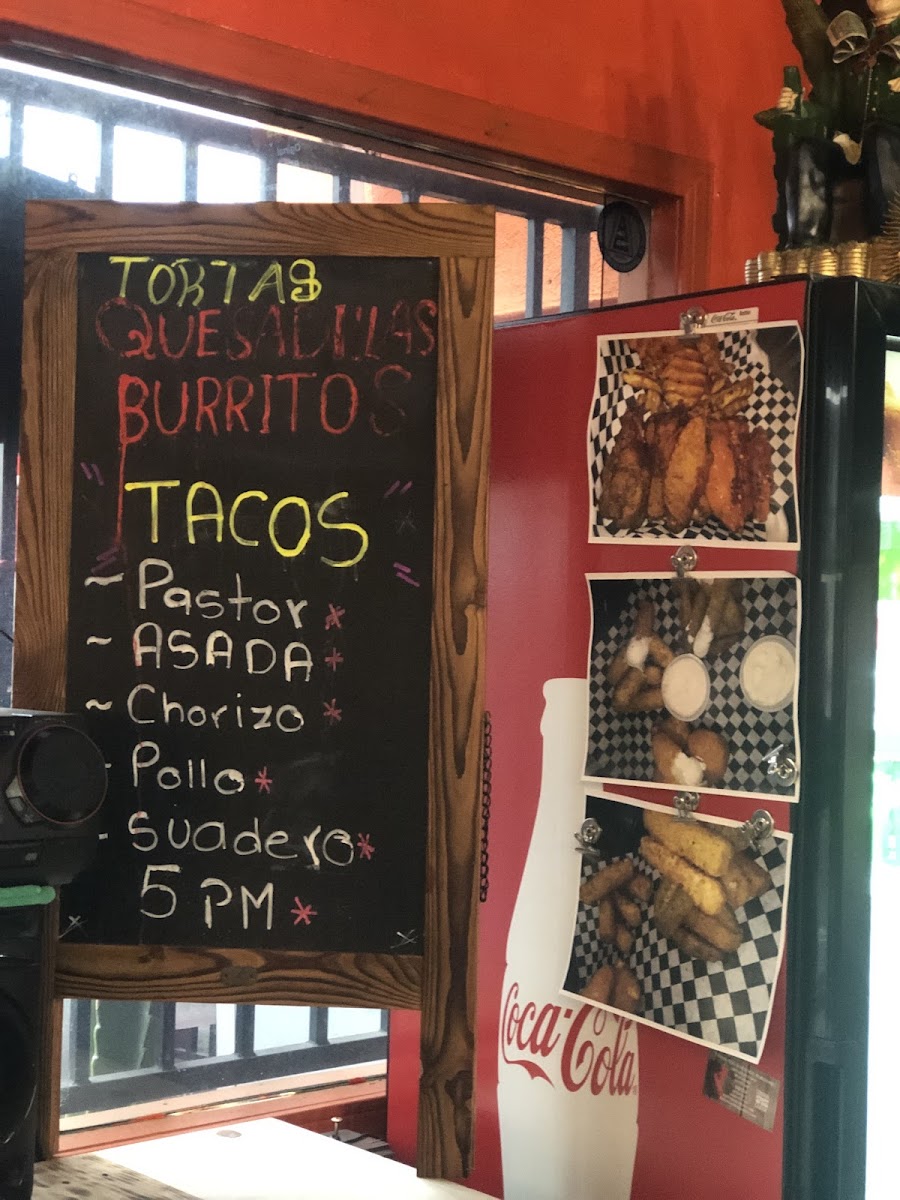 TORTAS
QUESADILLAS
BURRITOS
TACOS
~ Pastor *
~ ASADA *
~ Chorizo *
- Pollo *
- Suadero *
5 PM *
Coca-Cola
Coca-Cola